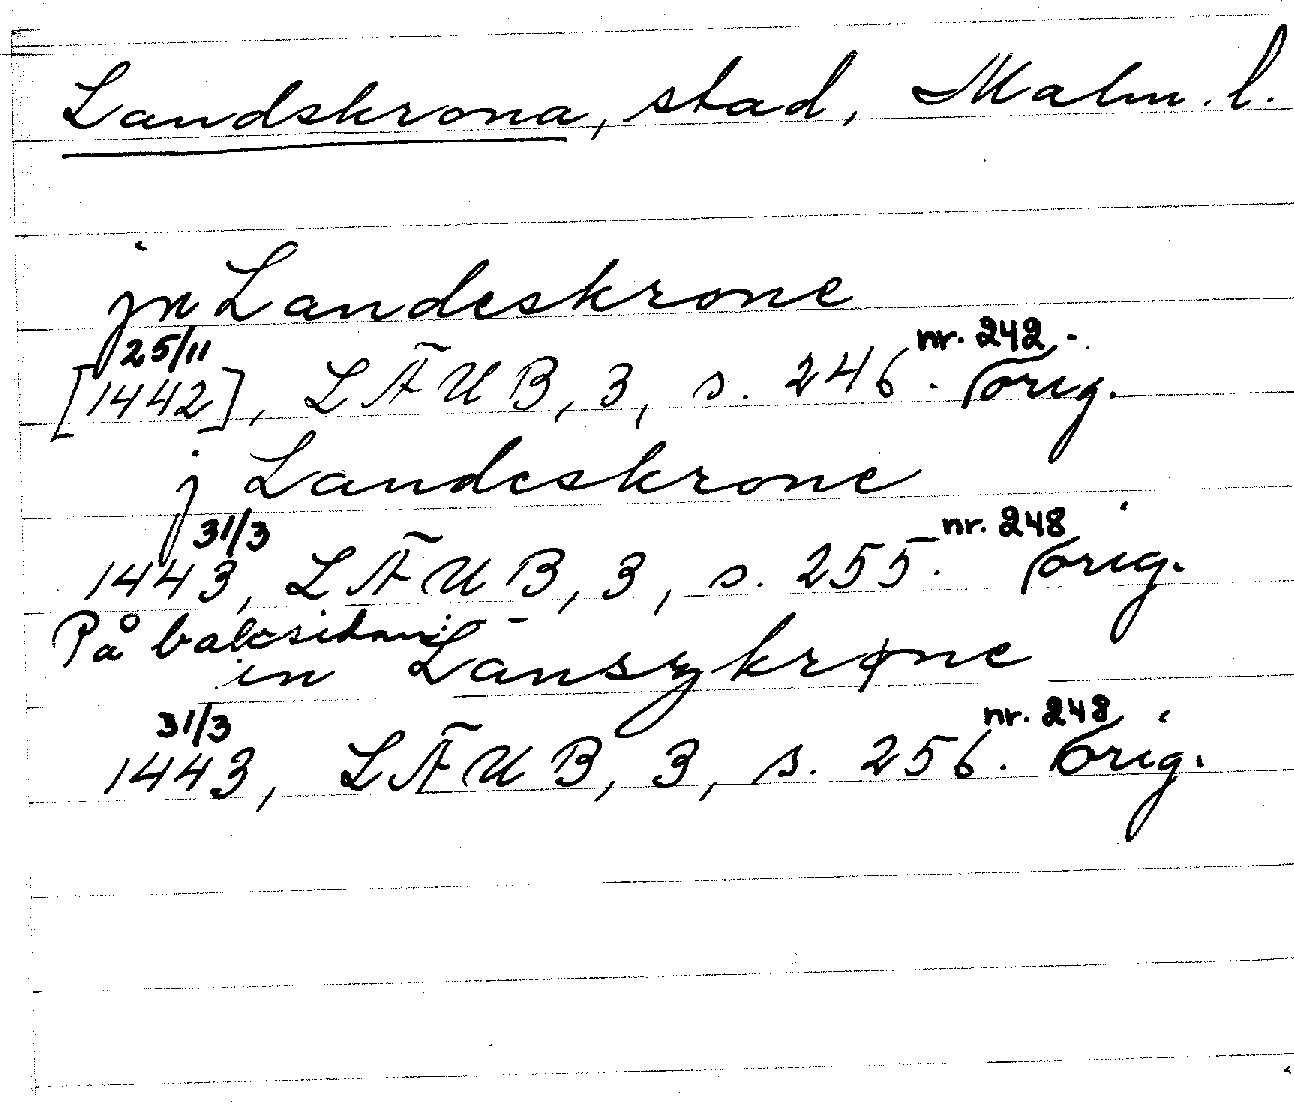 Landskrona, stad, Malm. l.
jn Landeskrone
25/11 nr. 242.
[1442], LÄUB, 3, s. 246. Orig.
j Landeskrone
31/3 nr. 248
1443, LÄUB, 3, s. 255. Orig.
På baksidan:
in Lanszkrone
31/3 nr. 248
1443, LÄUB, 3, s. 256. Orig.